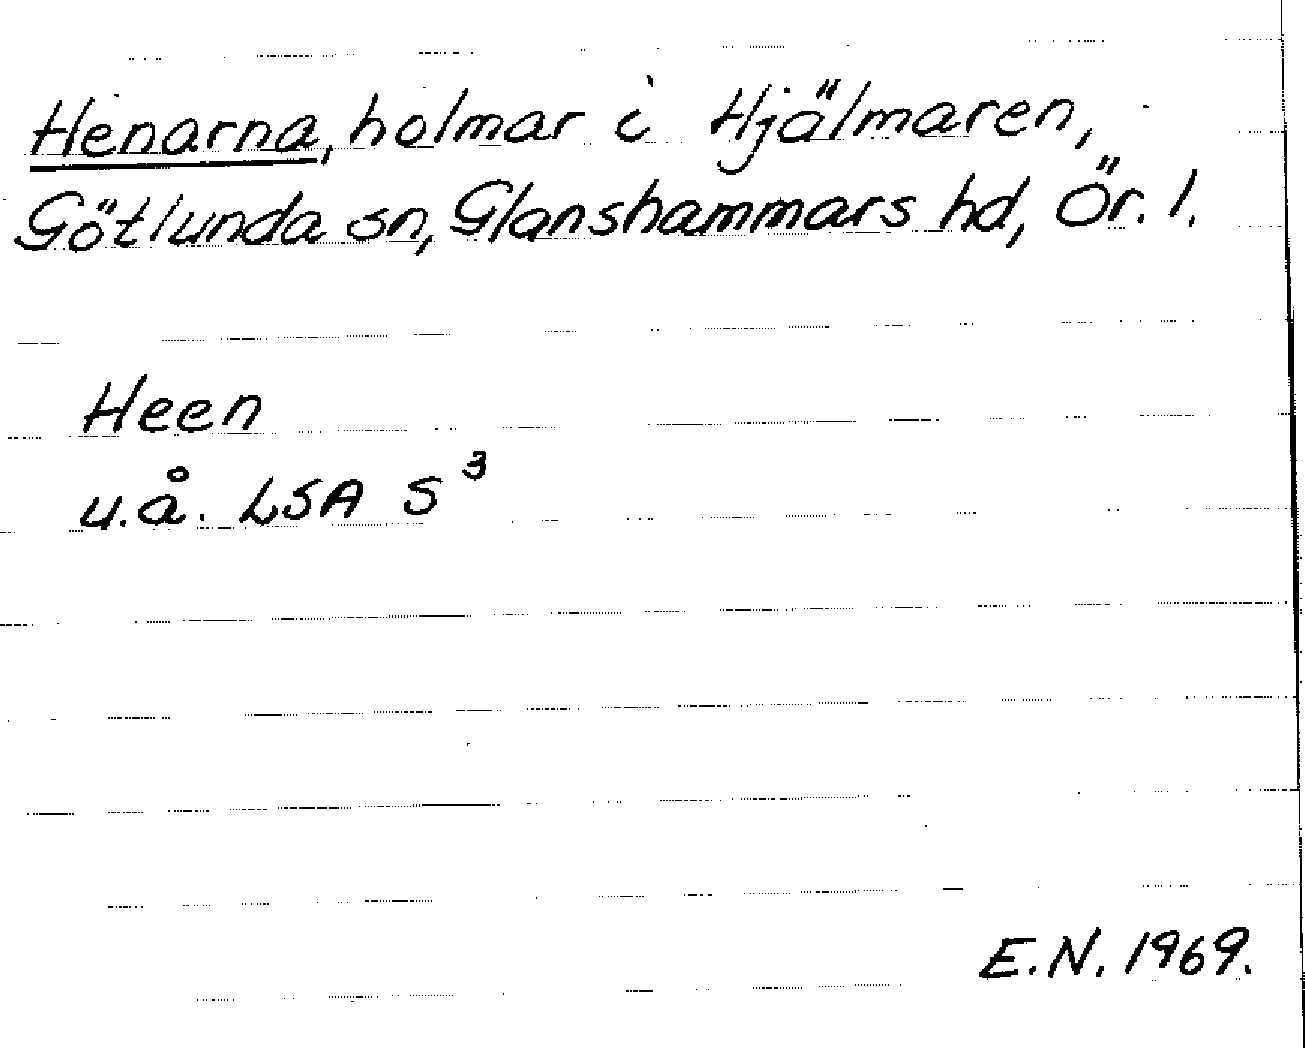 Henarna, holmar i Hjälmaren,
Götlunda sn, Glanshammars hd, Ör. l.
Heen
u.å. LSA S³
E.N. 1969.